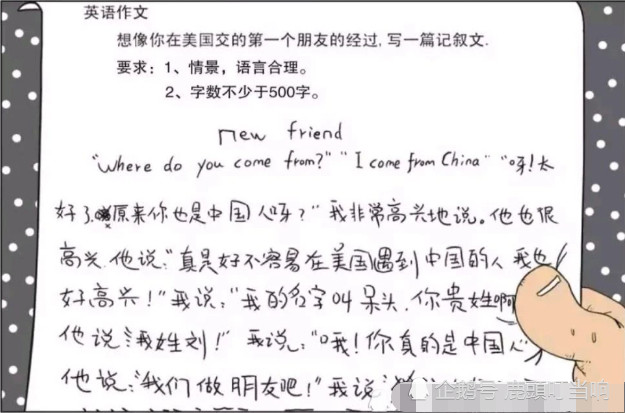 英语作文
想像你在美国交的第一个朋友的经过,写一篇记叙文.
要求：1、情景，语言合理。
2、字数不少于500字。
new friend
"Where do you come from?" "I come from China" "呀!太
好了,原来你也是中国人呀？"我非常高兴地说。他也很
高兴.他说:"真是好不容易在美国遇到中国的人 我也
好高兴!"我说:"我的名字叫呆头.你贵姓啊
他说:"我姓刘!" 我说:"哦!你真的是中国人
他说:"我们做朋友吧!"我说
企鹅号